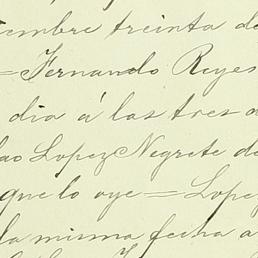 iembre treinta de
= Fernando Reyes
dia á las tres d
ao Lopez Negrete de
que lo oye = Lopez
la misma fecha a